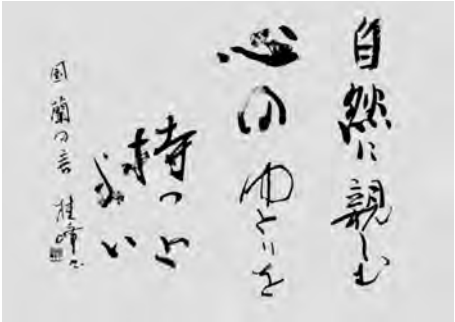 自然に親しむ
心のゆとりを
持つと
い
蘭の言 桂峰